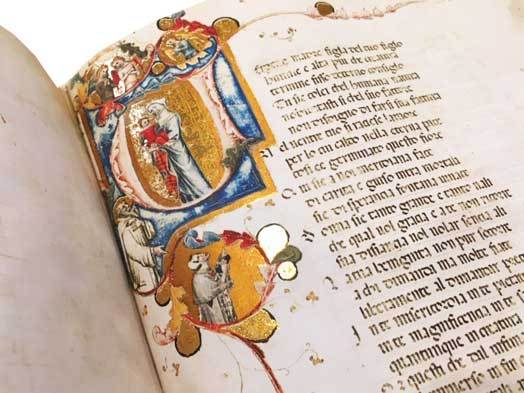 ergine madre figlia del tuo figlo
humile e alta piu che creatura
termine fisso decterno consiglo
Tu se colei che lumana natura
nobilitasti si chel suo factore
non disdegno di farsi sua factura
el ventre tuo si raccese lamore
per lo cui caldo nella eterna pace
cosi e germinato questo fiore
Qui se a noi meridiana face
di carita e giuso intra mortali
se di speranza fontana vivace
onna se tanto grande e tanto vali
che qual vuol gratia e a te non ricorre
sua disianza vuol volar senza ali
La tua benignita non pur soccorre
a chi dimanda ma molte fiate
liberamente al dimandar
In te misericordia in te pietate
in te magnificenza in te
quantunque in creatura
Or questi che dal infima